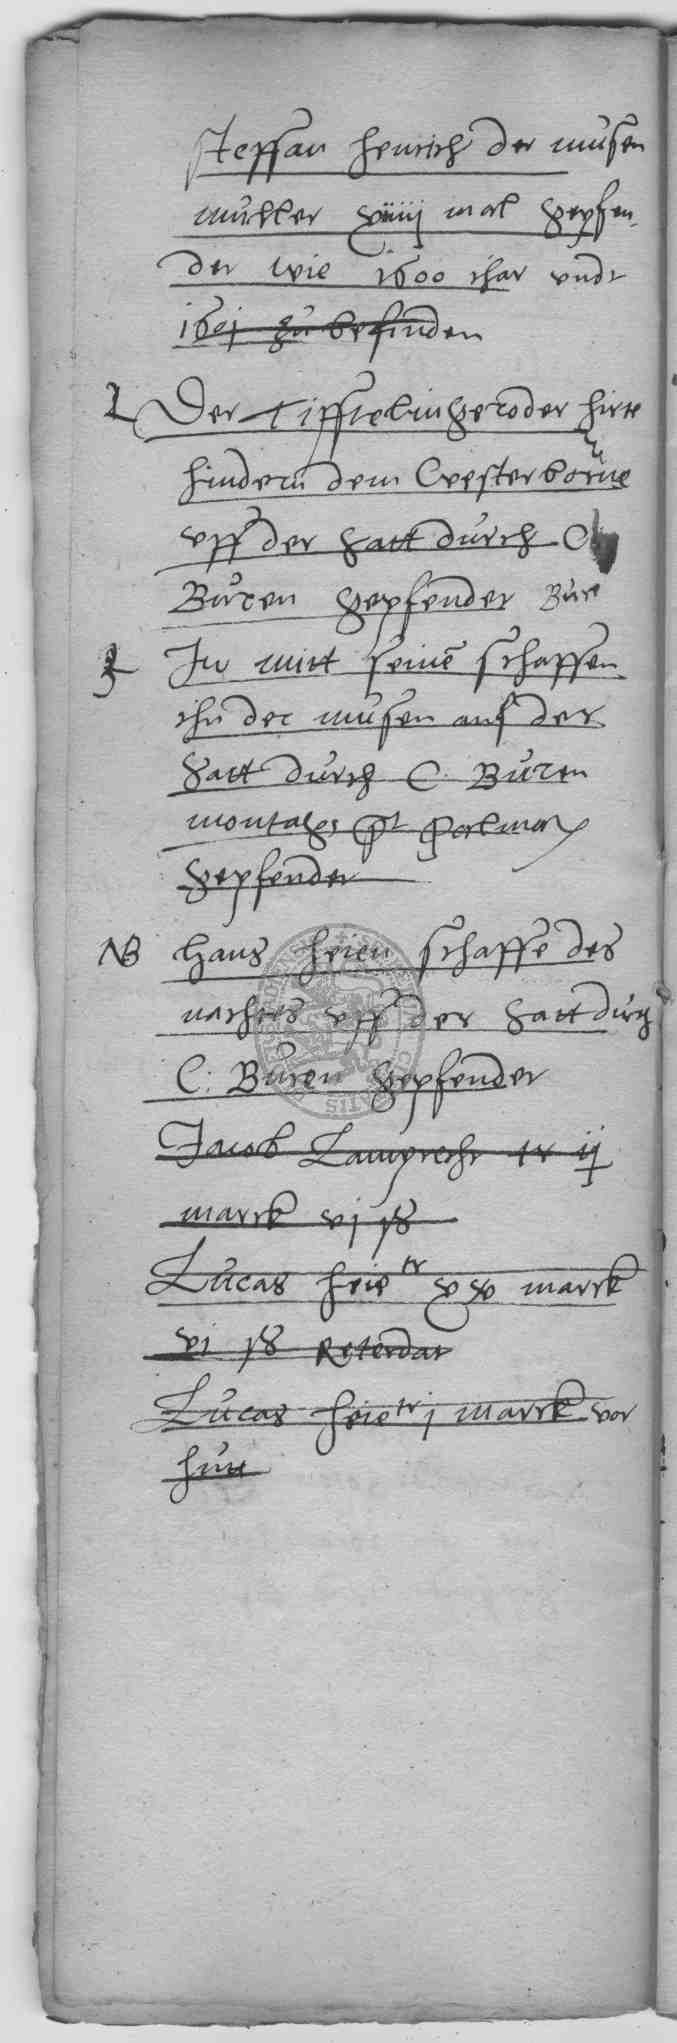 steffan henrich der musen
muller xviiij mal gepfen-
det wie 1600 ihar undt
1601 zu befinden
Der Tifftelingeroder hirte
hindern dem Westerborne
uff der Satt durch C
Buren gepfendet Bure
In mitt seinē schaffen
ihn der musen auf der
Satt durch C. Buren
montages pt palmar
gepfendet
NB hans heien schaffe des
nachtes uff der Satt durch
C: Buren gepfendet
Jacob Lamprecht tr ij
marck vj ß
Lucas heie tr xv marck
vj ß
Lucas heie tr j marck vor
hutt